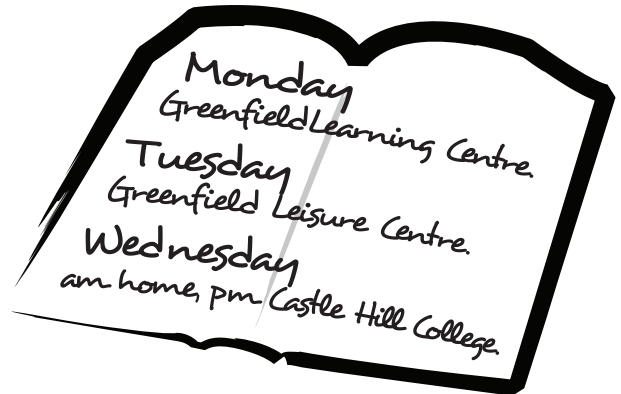 Monday
Greenfield Learning Centre.
Tuesday
Greenfield Leisure Centre.
Wednesday
am home, pm Castle Hill College.